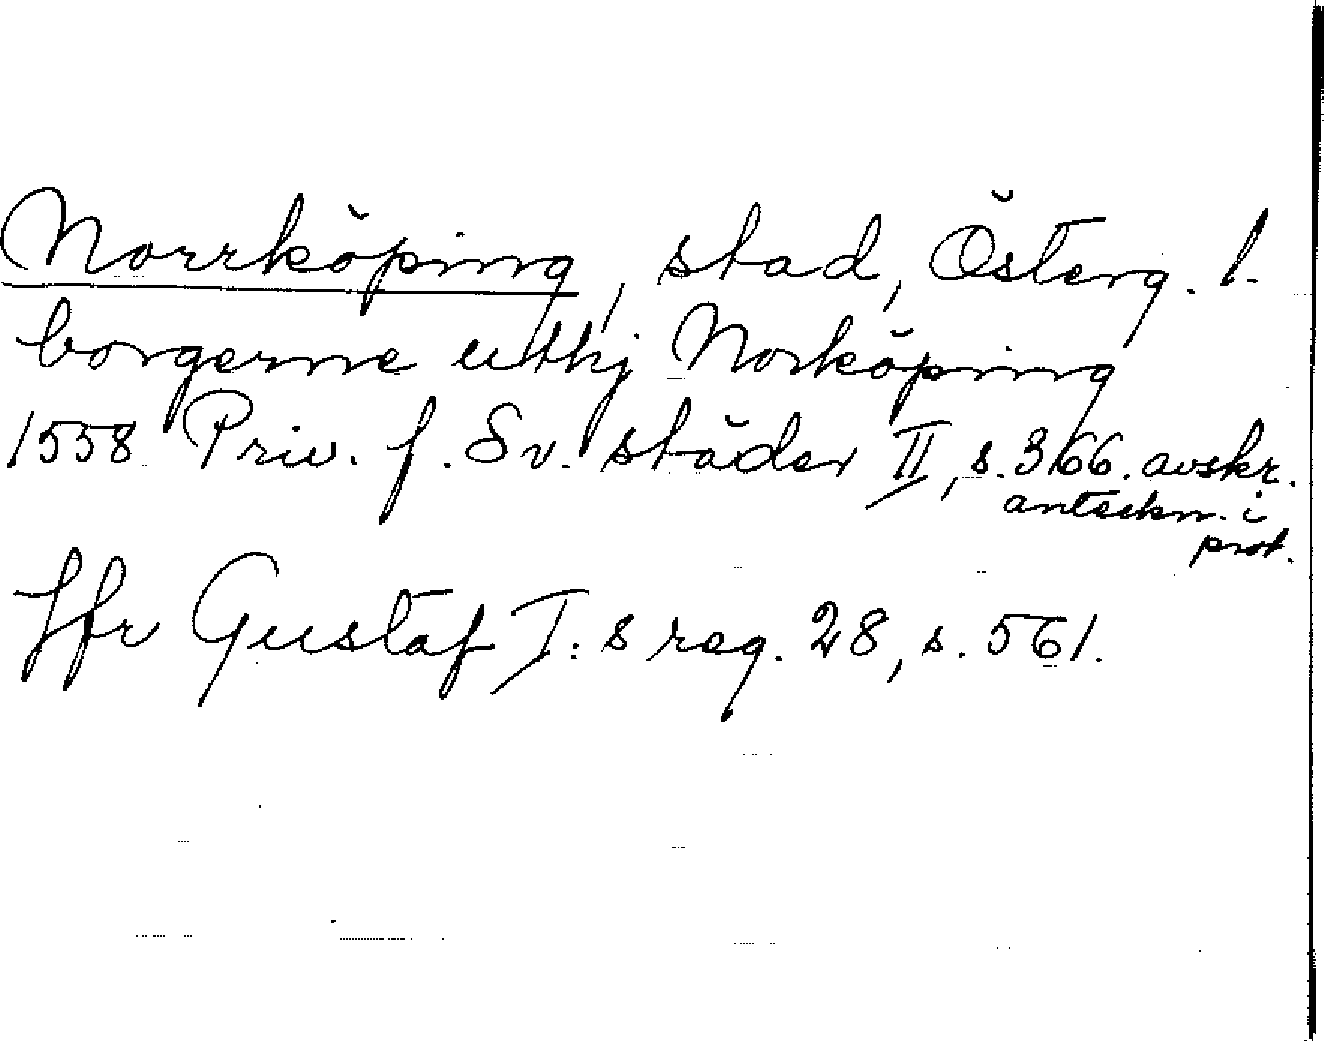 Norrköping, stad, Österg. l.
borgerne utthj Norköping
1558 Priv. f. Sv. städer II, s. 366. avskr.
anteckn. i
prot.
Jfr Gustaf I:s reg. 28, s. 561.